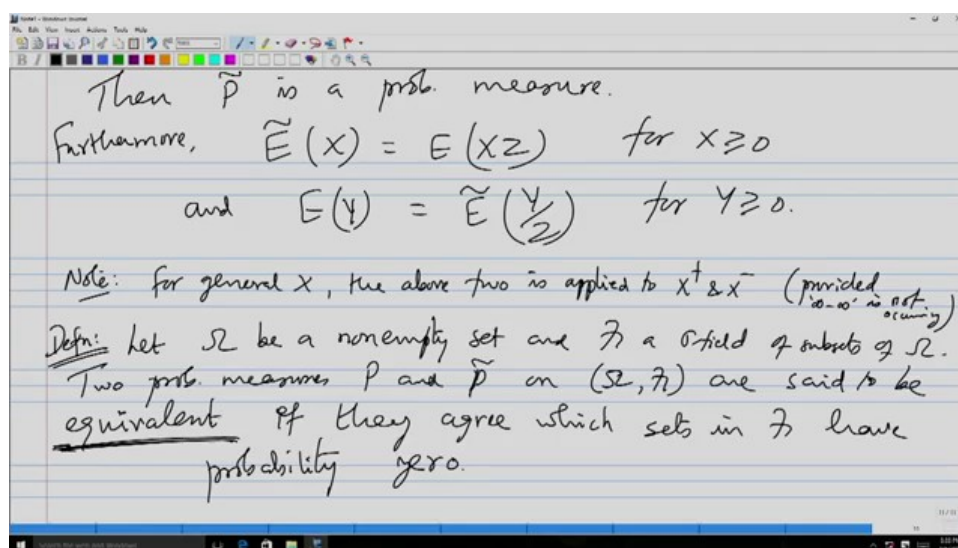 Note1 - Windows Journal
File Edit View Insert Actions Tools Help
B I
Then P̃ is a prob. measure.
Furthermore, Ẽ(X) = E(XZ) for X ≥ 0
and E(Y) = Ẽ(Y/Z) for Y ≥ 0.
Note: For general X, the above two is applied to X⁺ & X⁻ (provided '∞-∞' is not occuring)
Defn: Let Ω be a nonempty set and ℱ a σ-field of subsets of Ω.
Two prob. measures P and P̃ on (Ω, ℱ) are said to be
equivalent if they agree which sets in ℱ have
probability zero.
11/11
Search the web and Windows